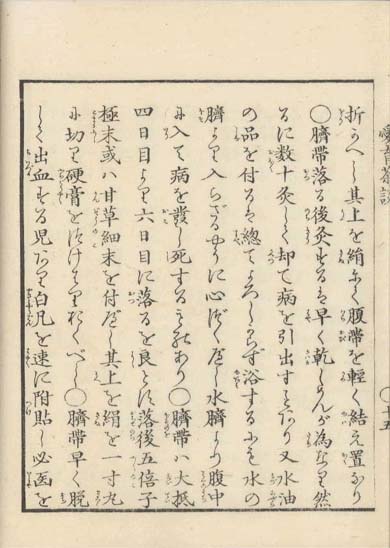 折かへし其上を絹にて腹帯を軽く結え置なり
〇臍帯落る後灸するは早く乾しめんが為なり然
るに数十灸して却て病を引出すことあり又水油
の品を付るは総てよろしからず浴するにも水の
臍より入らざるやうに心づくべし水臍より腹中
に入て病を發し死するものあり〇臍帯ハ大抵
四日目より六日目に落るを良とす落後五倍子
極末或ハ甘草細末を付べし其上を絹を一寸丸
に切り硬膏をつけてはりおくべし〇臍帯早く脱
して出血する児あり白凡を速に附貼し必医を